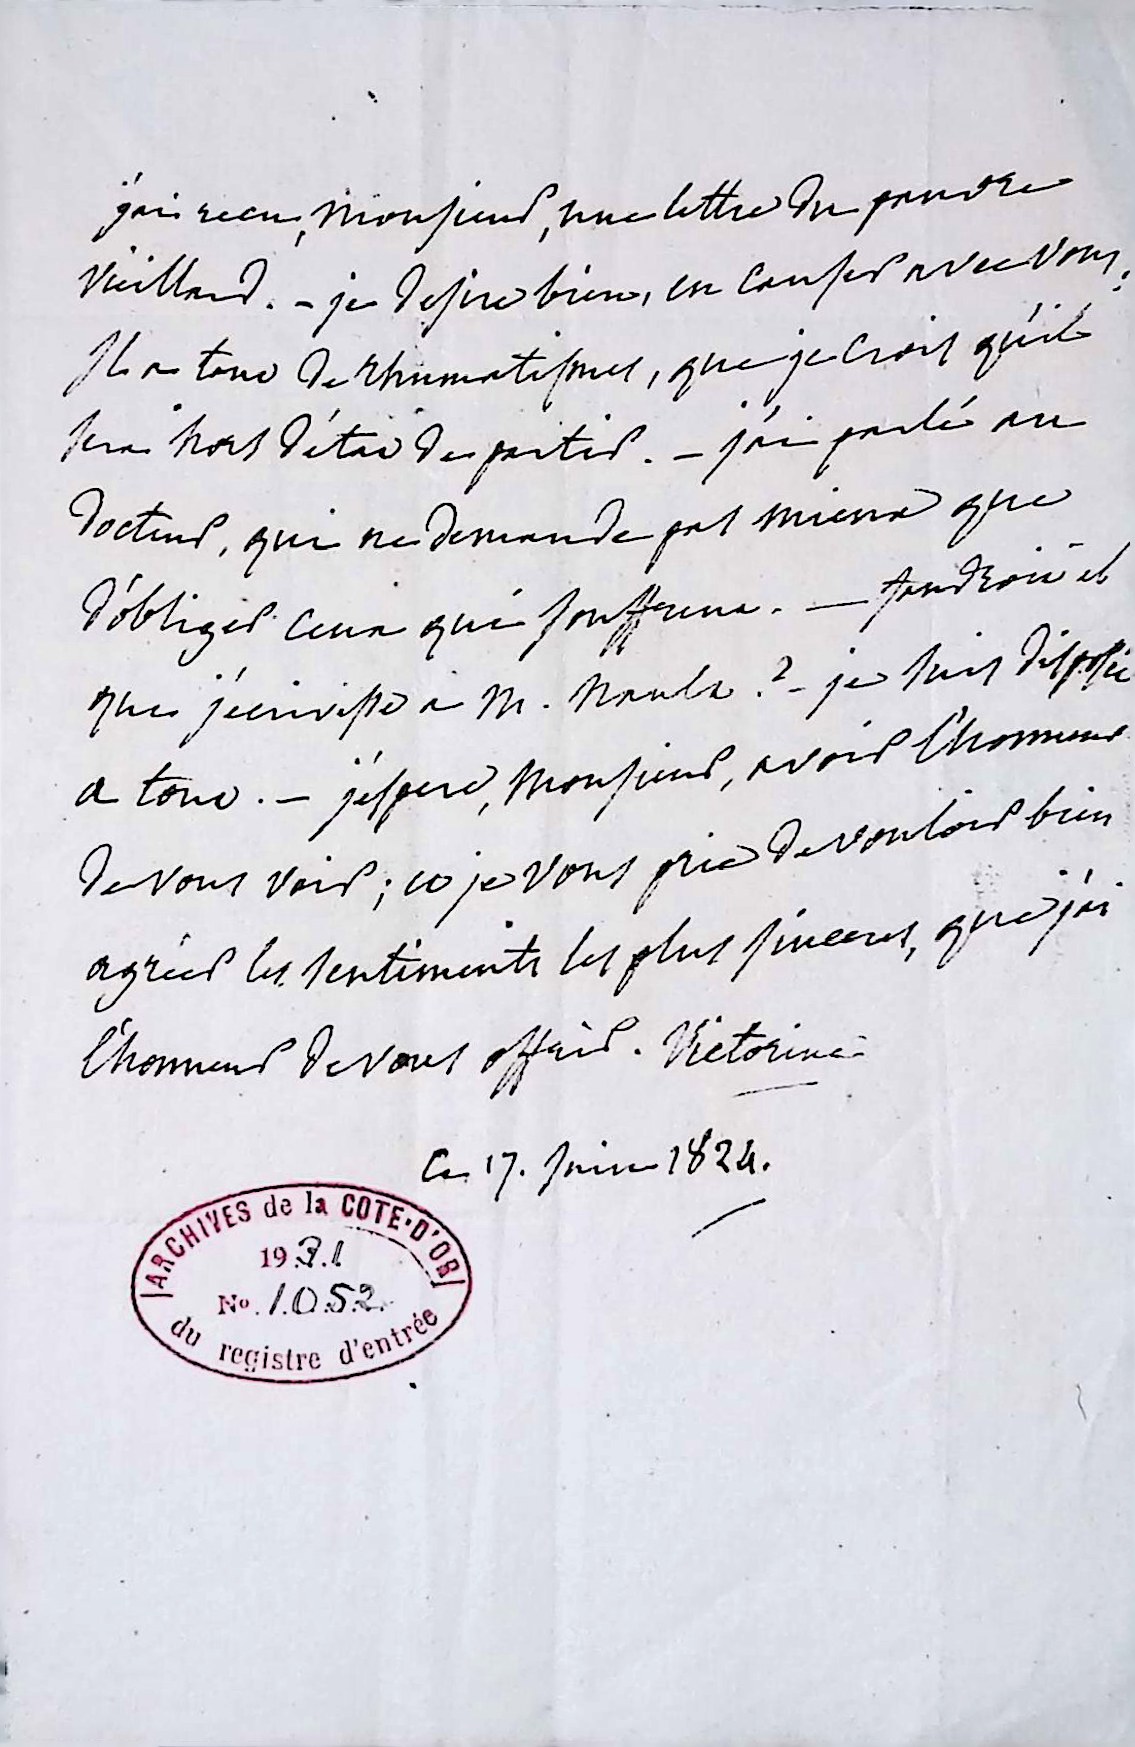 j'ai recu, Monsieur, une lettre du pauvre
vieillard. - je desire bien, en causer avec vous.
Il a tant de rhumatismes, que je crois qu'il
sera hors d'état de partir. - j'ai parlé au
docteur, qui ne demande pas mieux que
d'obliger ceux qui souffrent. - faudroit il
que j'écrivisse a M. Nault ? - je suis disposée
a tout. - j'espere, Monsieur, avoir l'honneur
de vous voir ; et je vous prie de vouloir bien
agréer les sentiments les plus sinceres, que j'ai
l'honneur de vous offrir. Victorine
Ce 17. Juin 1824.
ARCHIVES de la COTE-D'OR
1931
No. 1052
du registre d'entrée